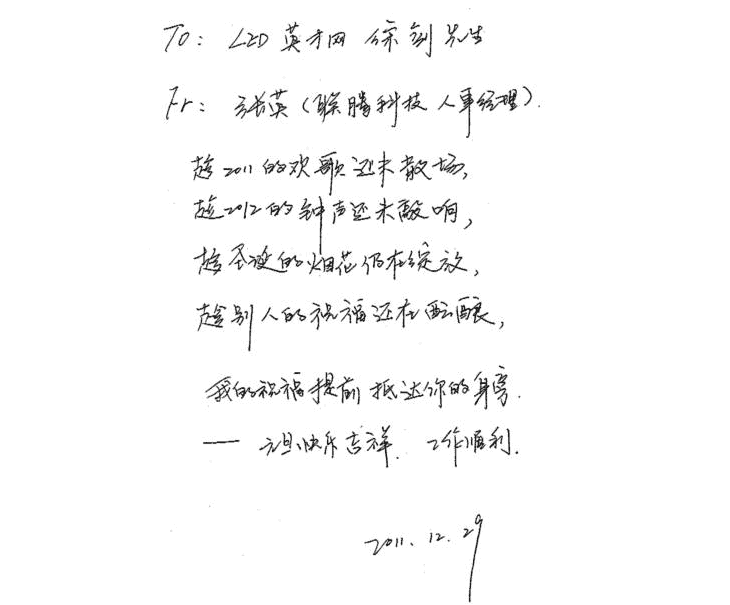 To: LED英才网 徐剑先生
Fr: 张英(联腾科技 人事经理).
趁2011的欢歌还未散场,
趁2012的钟声还未敲响,
趁圣诞的烟花仍在绽放,
趁别人的祝福还在酝酿,
我的祝福提前抵达你的身旁.
— 元旦快乐吉祥. 工作顺利.
2011.12.29